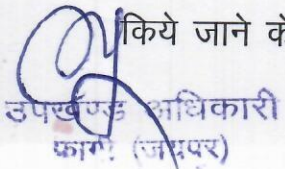 किये जाने के
उपखण्ड अधिकारी
फागी (जयपुर)